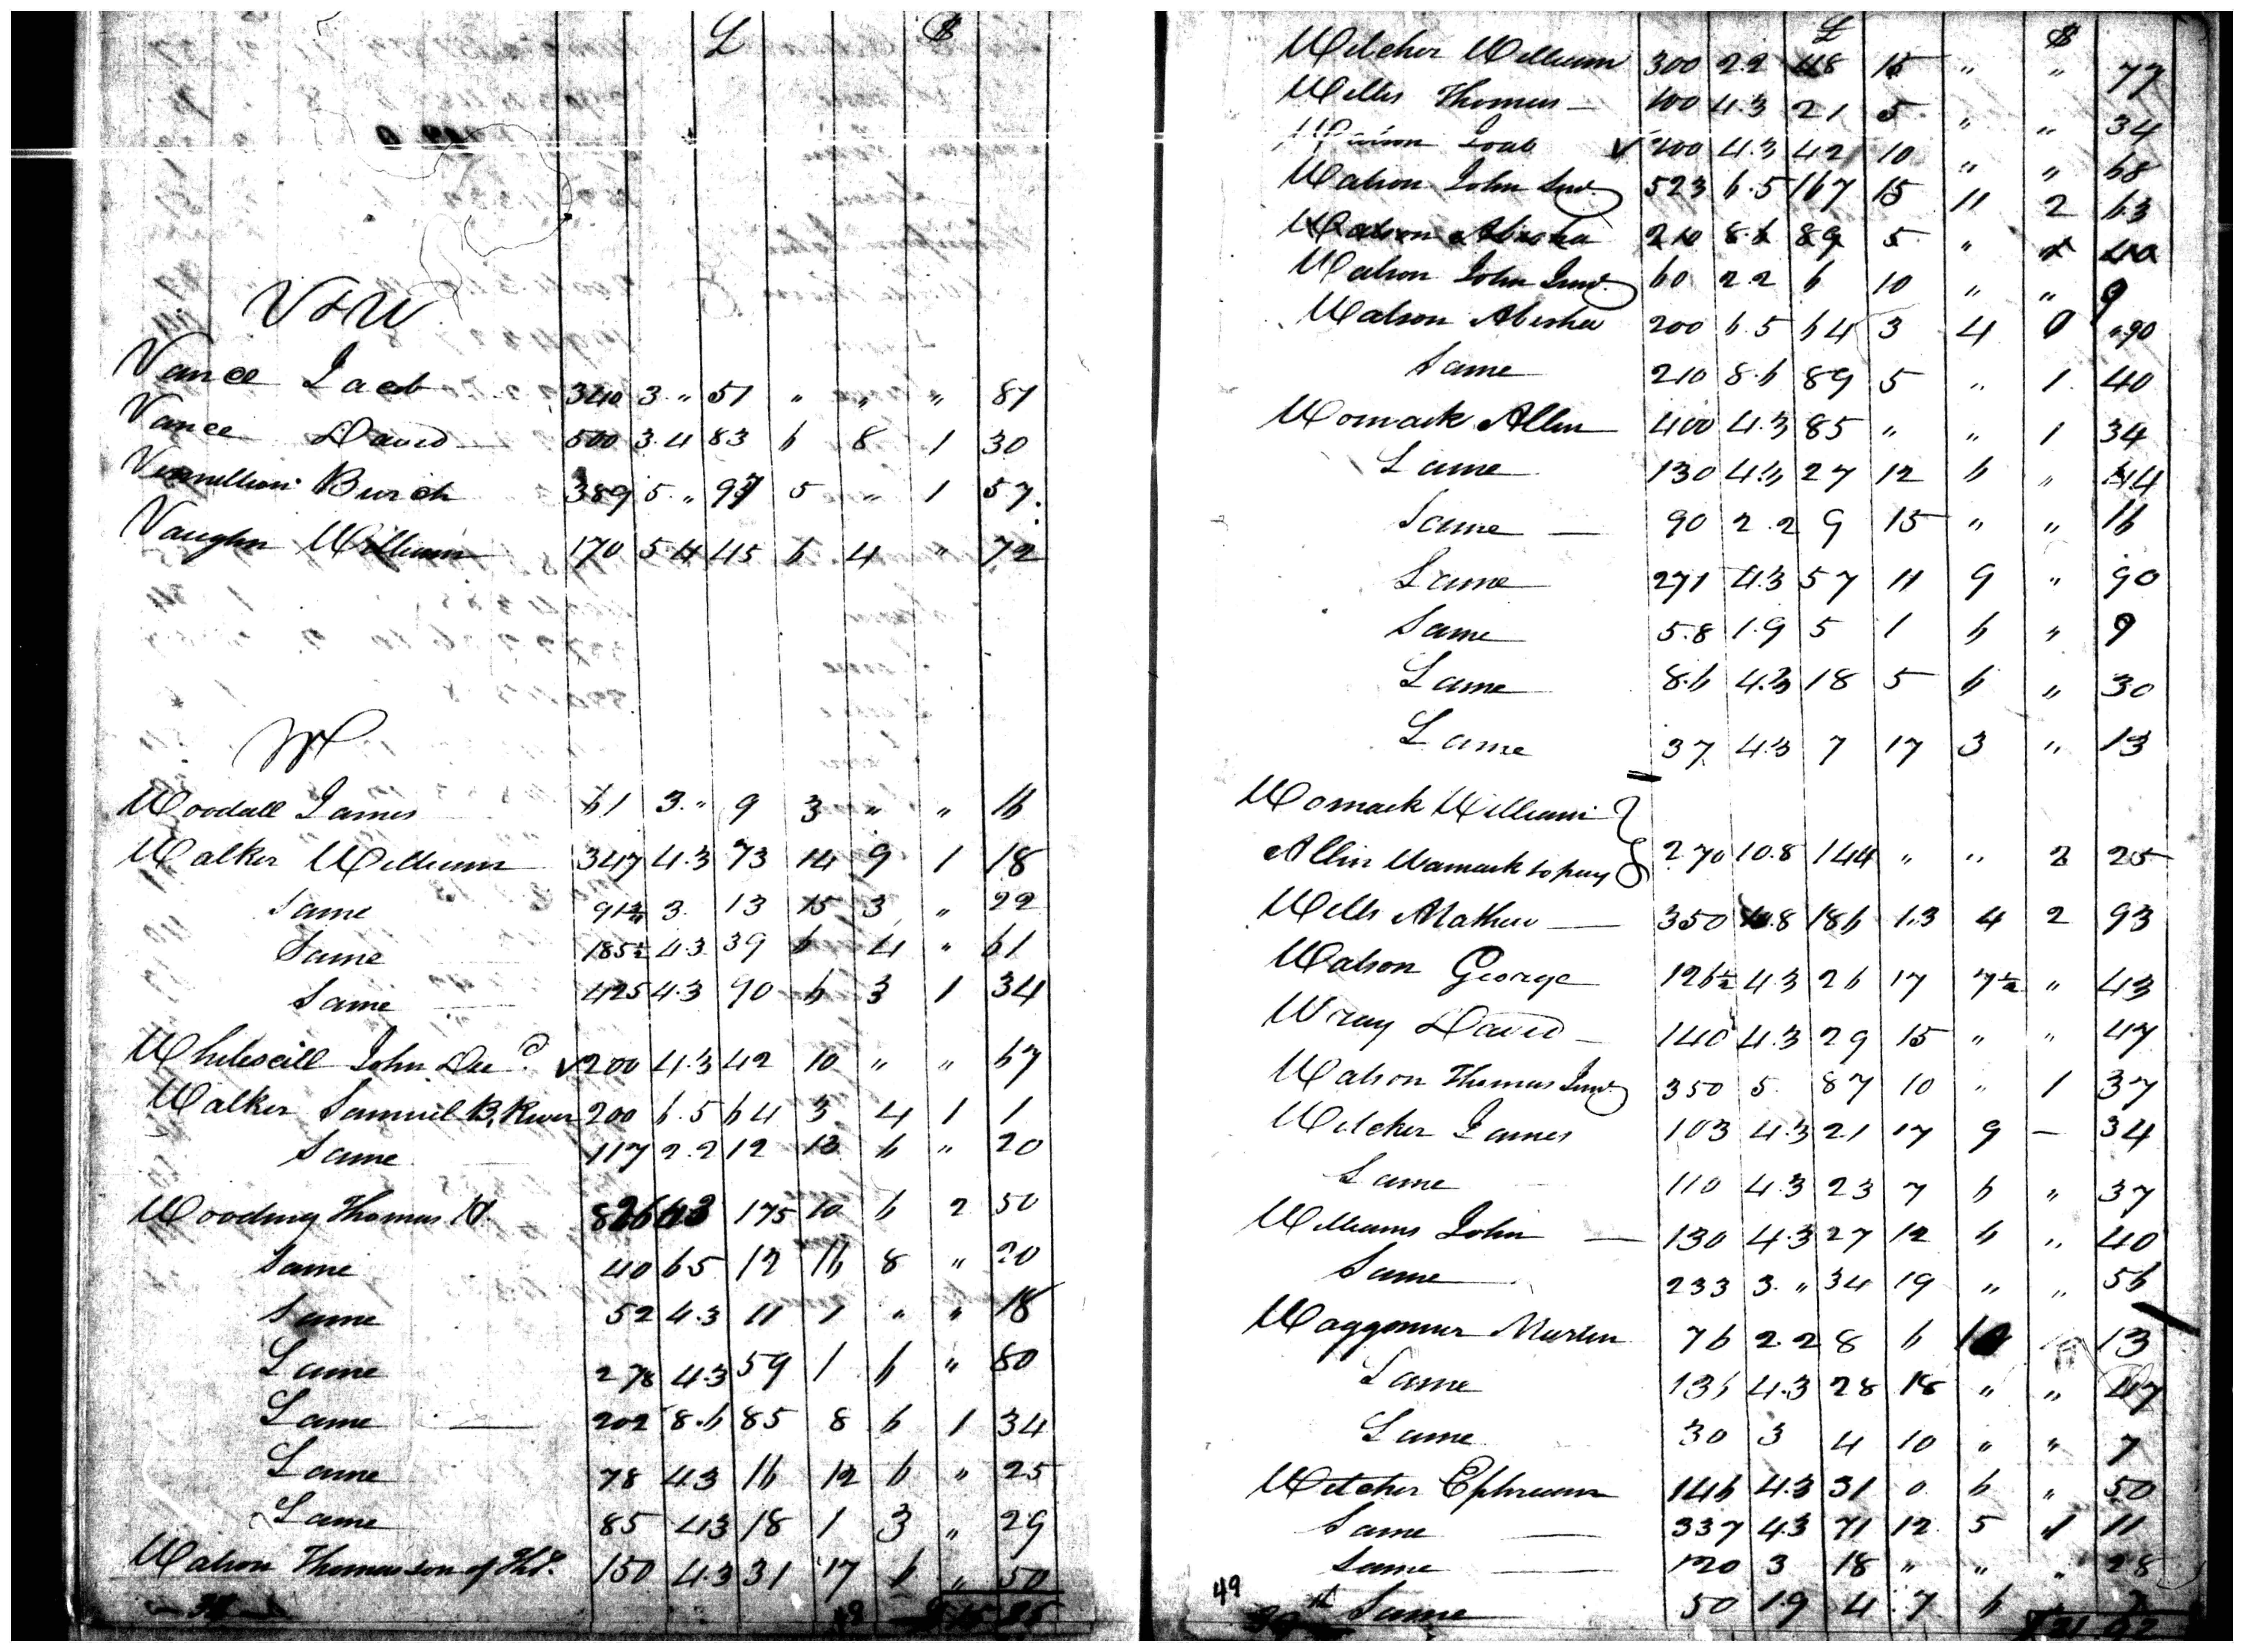 £ $
V & W
Vance Jacob 340 3 " 51 " " " 87
Vance David 500 3.4 83 6 8 1 30
Vermillion Burch 389 5 " 97 5 " 1 57
Vaughn William 170 5 4 45 6 4 " 72
W
Woodall James 61 3 " 9 3 " " 16
Walker William 347 4.3 73 14 9 1 18
Same 91¾ 3 13 15 3 " 22
Same 185½ 4.3 39 6 4 " 61
Same 425 4.3 90 6 3 1 34
Whitescill John Decd. √ 200 4.3 42 10 " " 67
Walker Samuel B. River 200 6.5 64 3 4 1 1
Same 117 2.2 12 13 6 " 20
Wooding Thomas H. 826 4.3 175 10 6 2 50
Same 40 6 5 12 16 8 " 20
Same 52 4.3 11 1 " " 18
Same 278 4.3 59 1 6 " 80
Same 202 8.6 85 8 6 1 34
Same 78 4 3 16 12 6 " 25
Same 85 4 3 18 1 3 " 29
Watson Thomas son of Thos. 150 4.3 31 17 6 " 50
£ $
Witcher William 300 2.2 48 15 " " 77
Willis Thomas 100 4.3 21 5 " " 34
Joab √ 200 4.3 42 10 " " 68
Watson John Senr. 523 6.5 167 15 11 2 63
Watson Abisha 210 8.6 89 5 "
Watson John Junr. 60 2 2 6 10 " " 9
Watson Abisha 200 6 5 64 3 4 0 " 90
Same 210 8.6 89 5 " 1 40
Womack Allen 400 4.3 85 " " 1 34
Same 130 4.3 27 12 6 " 44
Same 90 2.2 9 15 " " 16
Same 271 4.3 57 11 9 " 90
Same 5.8 1.9 5 1 6 " 9
Same 8.6 4.3 18 5 6 " 30
Same 37 4.3 7 17 3 " 13
Womack William }
Allin Wamack to pay } 270 10.8 144 " " 2 25
Wells Mathew 350 10.8 186 1.3 4 2 93
Watson George 126½ 4.3 26 17 7½ " 43
Wray David 140 4.3 29 15 " " 47
Watson Thomas Junr. 350 5 87 10 " 1 37
Witcher James 103 4.3 21 17 9 — 34
Same 110 4.3 23 7 6 " 37
Williams John 130 4.3 27 12 6 " 40
Same 233 3 " 34 19 " " 56
Waggonner Martin 76 2.2 8 6 13
Same 136 4.3 28 18 " " 47
Same 30 3 4 10 " " 7
Witcher Ephraim 146 4.3 31 0 6 " 50
Same 337 4.3 71 12 5 1 11
Same 120 3 18 " " " 28
49 Same 50 19 4 7 6